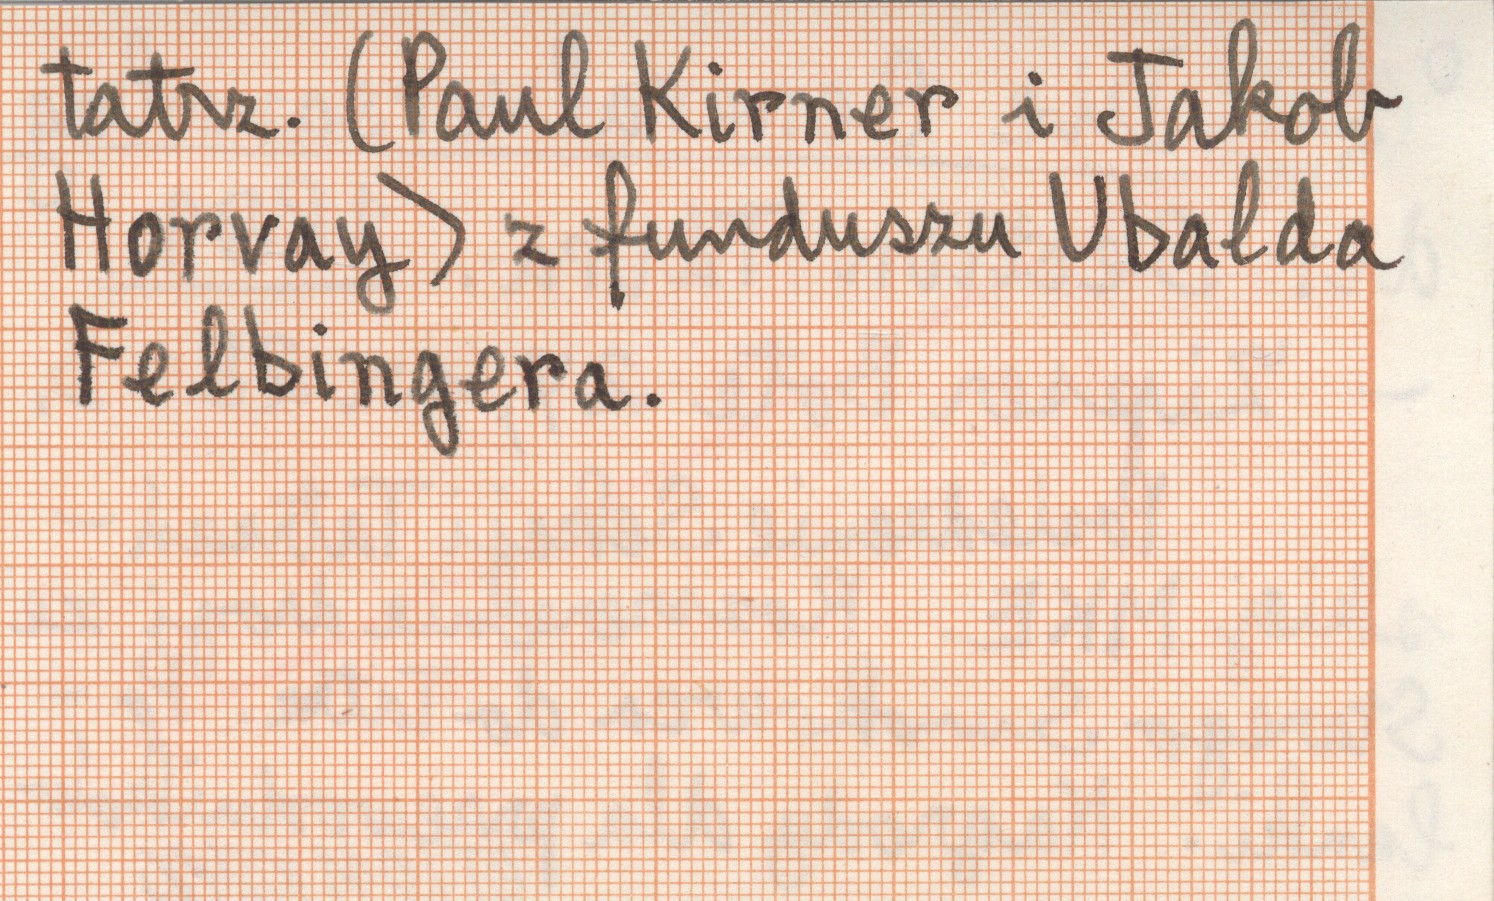 tatrz. (Paul Kirner i Jakob
Horvay) z funduszu Ubalda
Felbingera.